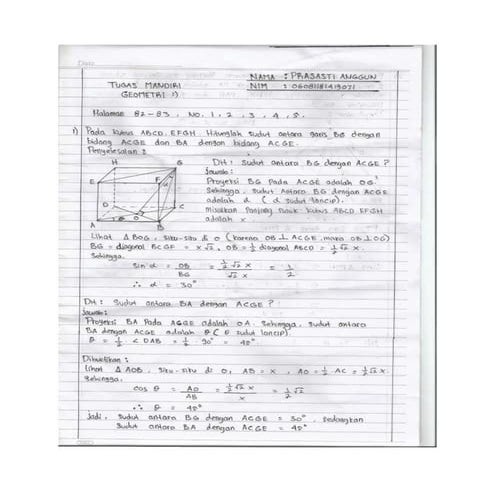 NAMA : PRASASTI ANGGUN
TUGAS MANDIRI
NIM : 06081181419071
GEOMETRI
Halaman 82-83, No. 1, 2, 3, 4, 5.
1) Pada kubus ABCD.EFGH. Hitunglah sudut antara garis BG dengan
bidang ACGE dan BA dengan bidang ACGE.
Penyelesaian :
H G
E F
D C
A B
O
Dit : Sudut antara BG dengan ACGE ?
Jawab :
Proyeksi BG pada ACGE adalah OG.
Sehingga, sudut antara BG dengan ACGE
adalah α (α sudut lancip).
Misalkan panjang rusuk kubus ABCD EFGH
adalah x.
Lihat Δ BOG, siku-siku di O (karena OB ⊥ ACGE, maka OB ⊥ OG)
BG = diagonal BCGF = x√2, OB = ½ diagonal ABCD = ½√2 x.
Sehingga,
sin α = OB/BG = ½√2 x / √2 x = 1/2
∴ α = 30°
Dit : Sudut antara BA dengan ACGE ?
Jawab :
Proyeksi BA pada ACGE adalah OA. Sehingga, sudut antara
BA dengan ACGE adalah θ (θ sudut lancip).
θ = ½ . ∠ DAB = ½ . 90° = 45°
Dibuktikan :
Lihat Δ AOB, siku-siku di O, AB = x, AO = ½ AC = ½√2 x.
Sehingga,
cos θ = AO/AB = ½√2 x / x = ½√2
∴ θ = 45°
Jadi, sudut antara BG dengan ACGE = 30°, sedangkan
sudut antara BA dengan ACGE = 45°